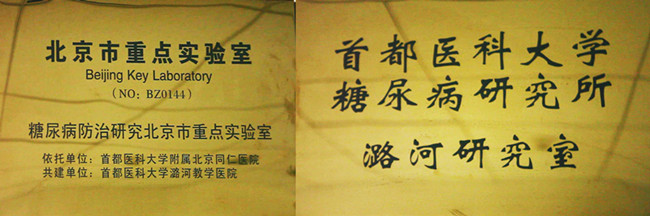 北京市重点实验室
Beijing Key Laboratory
(NO: BZ0144)
糖尿病防治研究北京市重点实验室
依托单位：首都医科大学附属北京同仁医院
共建单位：首都医科大学潞河教学医院
首都医科大学
糖尿病研究所
潞河研究室